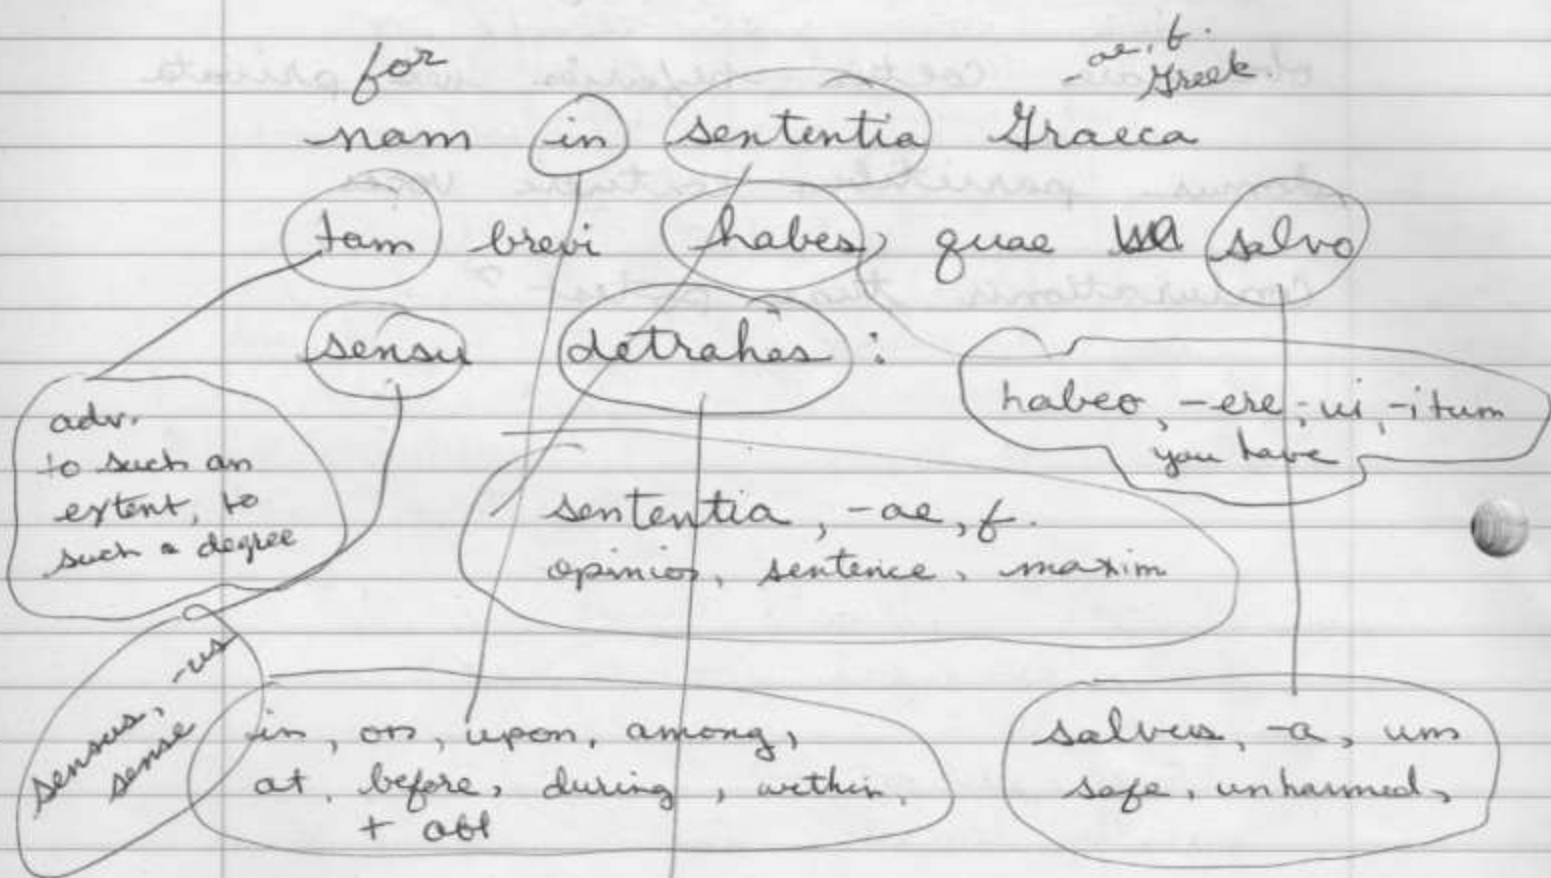 for
-ae, f.
Greek
nam in sententia Graeca
tam brevi habes, quae salvo
sensu detrahas :
habeo, -ere, -ui, -itum
you have
adv.
to such an
extent, to
such a degree
sententia, -ae, f.
opinion, sentence, maxim
sensus, -us
sense
in, on, upon, among,
at, before, during, within,
+ abl
salvus, -a, um
safe, unharmed,